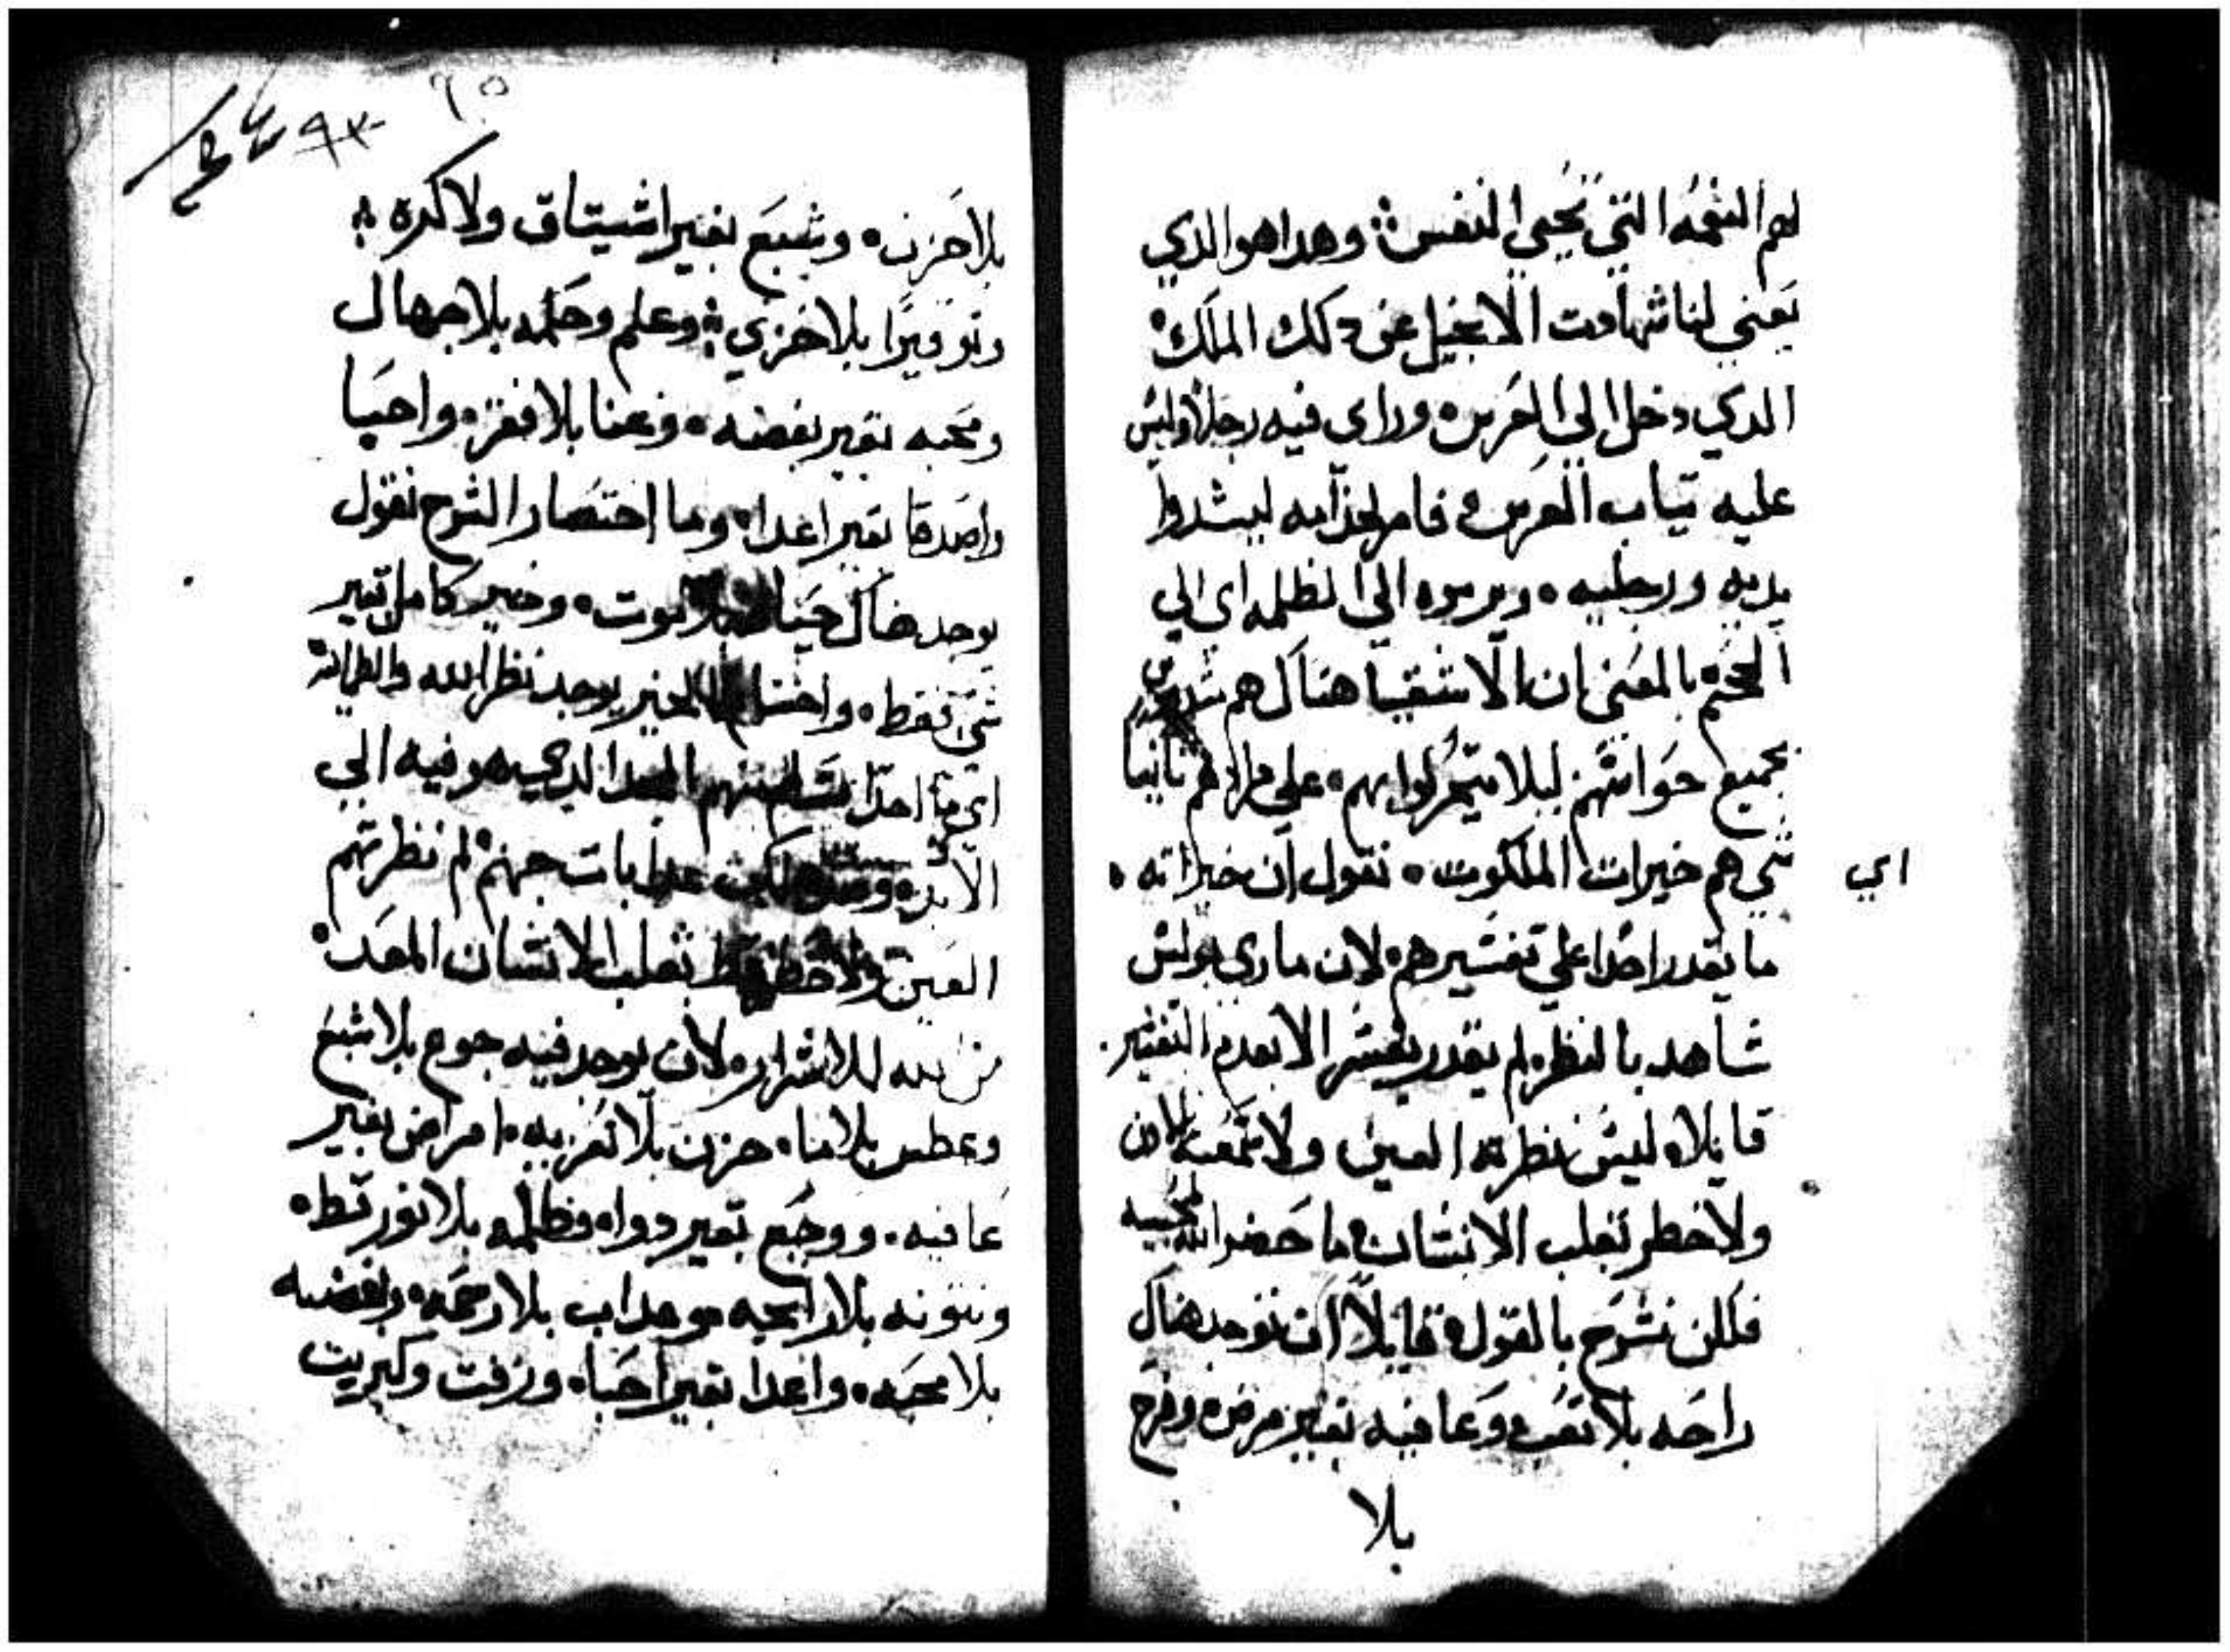 لهم النعمه التي تحيي النفس ⁘ وهدا هو الدي
يعني لنا شهادت الانجيل عن دلك الملك
الدي دخل الي العرس وراي فيه رجلاً وليس
عليه تياب العرس فامر لخدامه ليشدوا
يديه ورجليه وير موه الي الظلمه اي الي
الجحيم بالمعني ان الاشقيا هناك هم
بجميع حواسهم ليلا يتحركوا بهم علي مرادهم تانيا
اي
شي هم خيرات الملكوت نقول ان خيراته
ما يقدر احدا علي تفسيرهم لان ماري بولس
شاهد بالنظر ولم يقدر يفسر الا بعدم التفسير
قايلا ليس نظرته العين ولا سمعته الادن
ولا خطر بقلب الانسان ما حضر الله لمحبيه
فلكن نشرح بالقول قايلاً ان نوجد هناك
راحه بلا تعب وعافيه بغير مرض وفرح
بلا
٩٥
٩٣
بلا حزن وشبع بغير اشتياق ولا كره
وتوقيرًا بلا خزي وعلم وحكمه بلا جهال
ومحبه بغير بغضه وغنا بلا فقر واحبا
واصدقا بغير اعدا وما اختصار الشرح نقول
يوجد هناك حياه بلا موت وخير كامل بغير
شي فقط الخير يوجد نظر الله
احدا الدي هو فيه الي
الابد عدابات جهنم لم نظرتهم
العين ولا خطر قط بقلب الانسان المعد
من الله للاشرار لان يوجد فيه جوع بلا شبع
وعطس بلا ما حزن بلا تعزيه امراض بغير
عافيه ووجع بغير دوا وظلمه بلا نور قط
ونتونه بلا رايحه وعداب بلا رحمه وبغضه
بلا محبه واعدا بغير احبا وزفت وكبريت